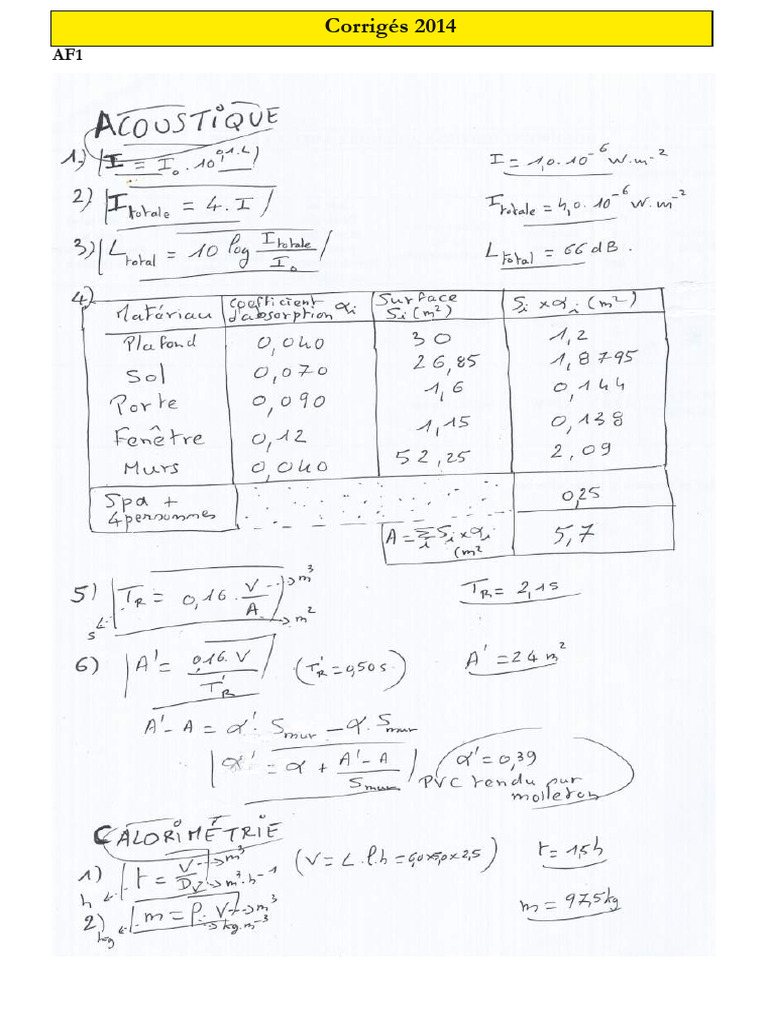 Corrigés 2014
AF1
ACOUSTIQUE
1) I = I₀ . 10^0,1.L I = 1,0.10⁻⁶ W.m⁻²
2) I totale = 4. I I totale = 4,0.10⁻⁶ W.m⁻²
3) L total = 10 log I totale / I₀ L total = 66 dB.
4)
Matériau Coefficient d'absorption αi Surface Si (m²) Si x αi (m²)
Plafond 0,040 30 1,2
Sol 0,070 26,85 1,8795
Porte 0,090 1,6 0,144
Fenêtre 0,12 1,15 0,138
Murs 0,040 52,25 2,09
Spa + 4 personnes 0,25
A = Σi Si x αi (m² 5,7
5) TR = 0,16 . V / A → m³ → m² s TR = 2,1 s
6) A' = 0,16. V / T'R (T'R = 0,50 s) A' = 24 m²
A' - A = α' . S mur - α. S mur
α' = α + A' - A / S mur α' = 0,39
PVC tendu sur
molleton
CALORIMÉTRIE
1) t = V / Dv → m³ → m³. h⁻¹ h (V = L. l. h = 4,0x5,0x2,5) t = 1,5 h
2) m = ρ. V → m³ → kg.m⁻³ kg m = 97,5 kg